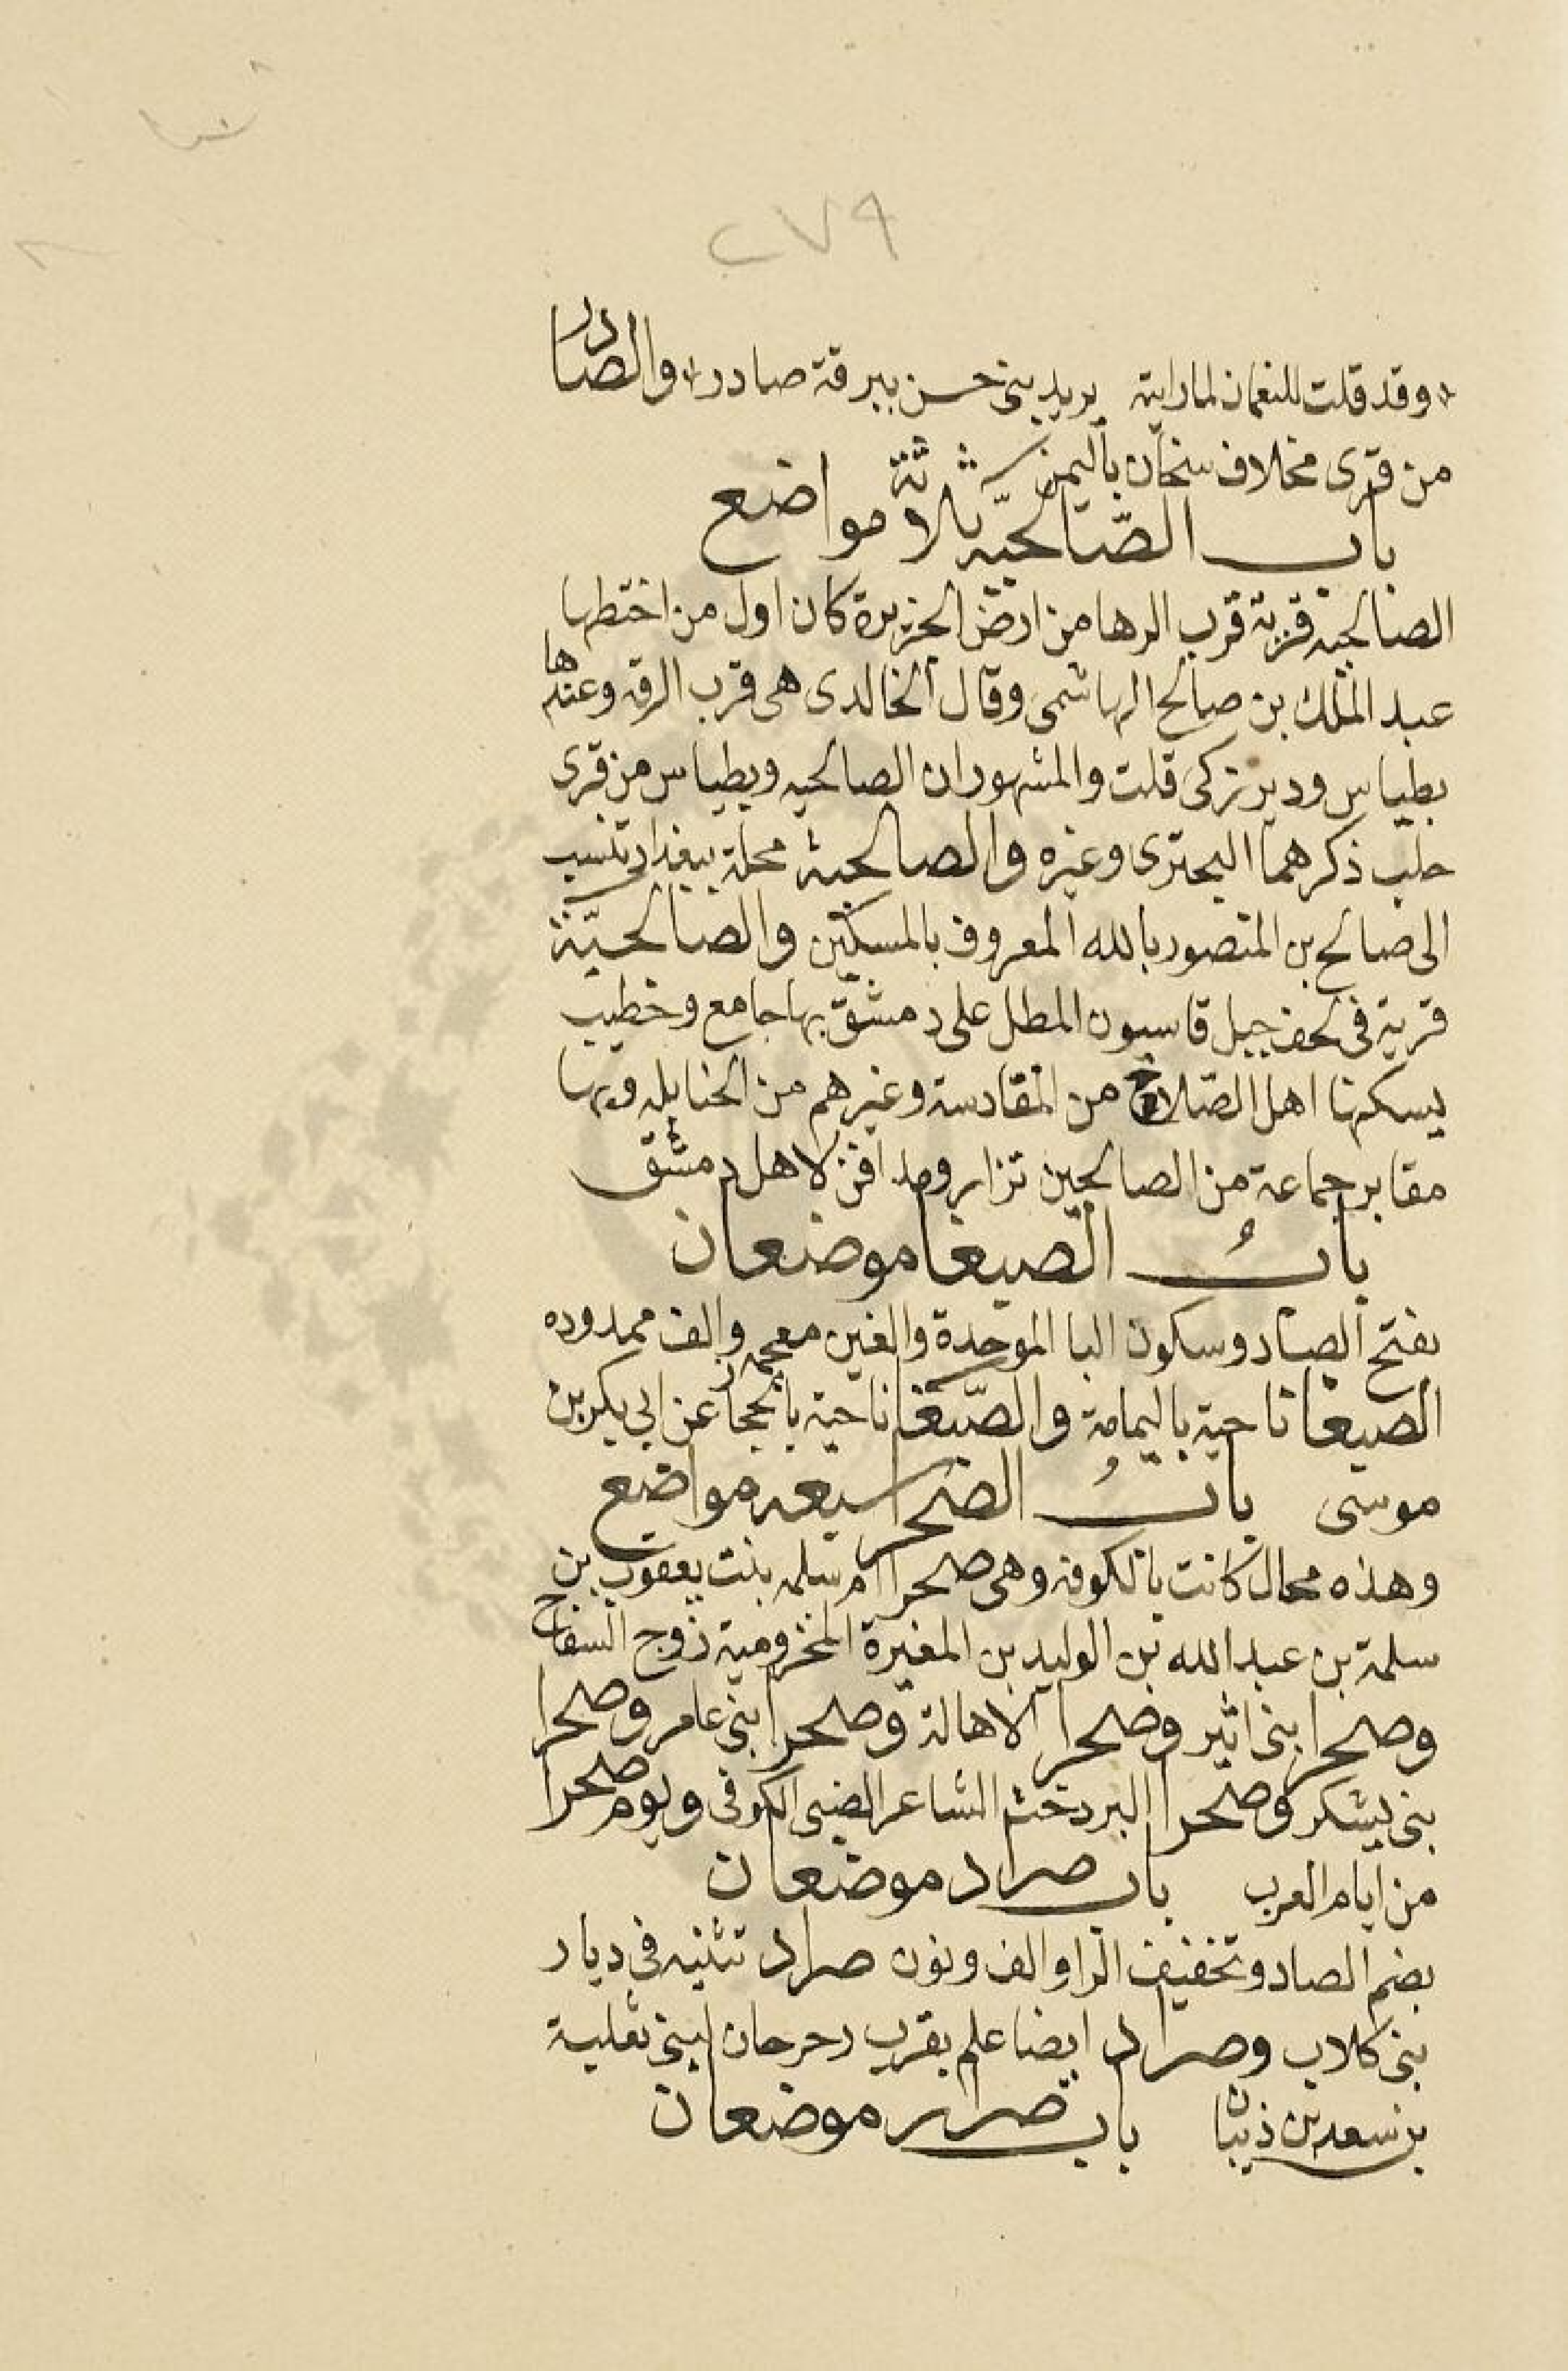 ٢٧٩
وقد قلت للنعمان لما رايته يريد بنى حسن ببرقة صادر والصادر
من قرى مخلاف سنحان باليمن
باب الصّالحيّه ثلاثة مواضع
الصالحيه قرية قرب الرها من ارض الجزيرة كان اول من اختطها
عبد الملك بن صالح الهاشمى وقال الخالدى هى قرب الرقه وعندها
بطياس ودير زكى قلت والمشهور ان الصالحيه وبطياس من قرى
حلب ذكرهما البحترى وغيره والصالحية محلة ببغداد تنسب
الى صالح بن المنصور بالله المعروف بالمسكين والصالحيّة
قرية فى لحف جبل قاسيون المطل على دمشق بها جامع وخطيب
يسكنها اهل الصّلاح من المقادسة وغيرهم من الحنابله وبها
مقابر جماعة من الصالحين تزار ومدافن لاهل دمشق
بابُ الصبغا موضعان
بفتح الصاد وسكون البا الموحدة والغين معجمه والف ممدوده
الصبغا ناحية باليمامة والصّبغا ناحية بالحجاز عن ابى بكر بن
موسى بابُ الصحرا سبعه مواضع
وهذه محال كانت بالكوفه وهى صحرا ام سلمه بنت يعقوب بن
سلمة بن عبد الله بن الوليد بن المغيرة المخزومية زوج السفاح
وصحرا بنى اثير وصحرا الاهالة وصحرا بنى عامر وصحرا
بنى يشكر وصحرا البردخت الشاعر الضبى الكوفى ويوم صحرا
من ايام العرب باب صراد موضعان
بضم الصاد وتخفيف الرا والف ونون صراد تثنيه فى ديار
بنى كلاب وصراد ايضا علم بقرب رحرحان لبنى ثعلبة
بن سعد بن ذبيان باب صرار موضعان